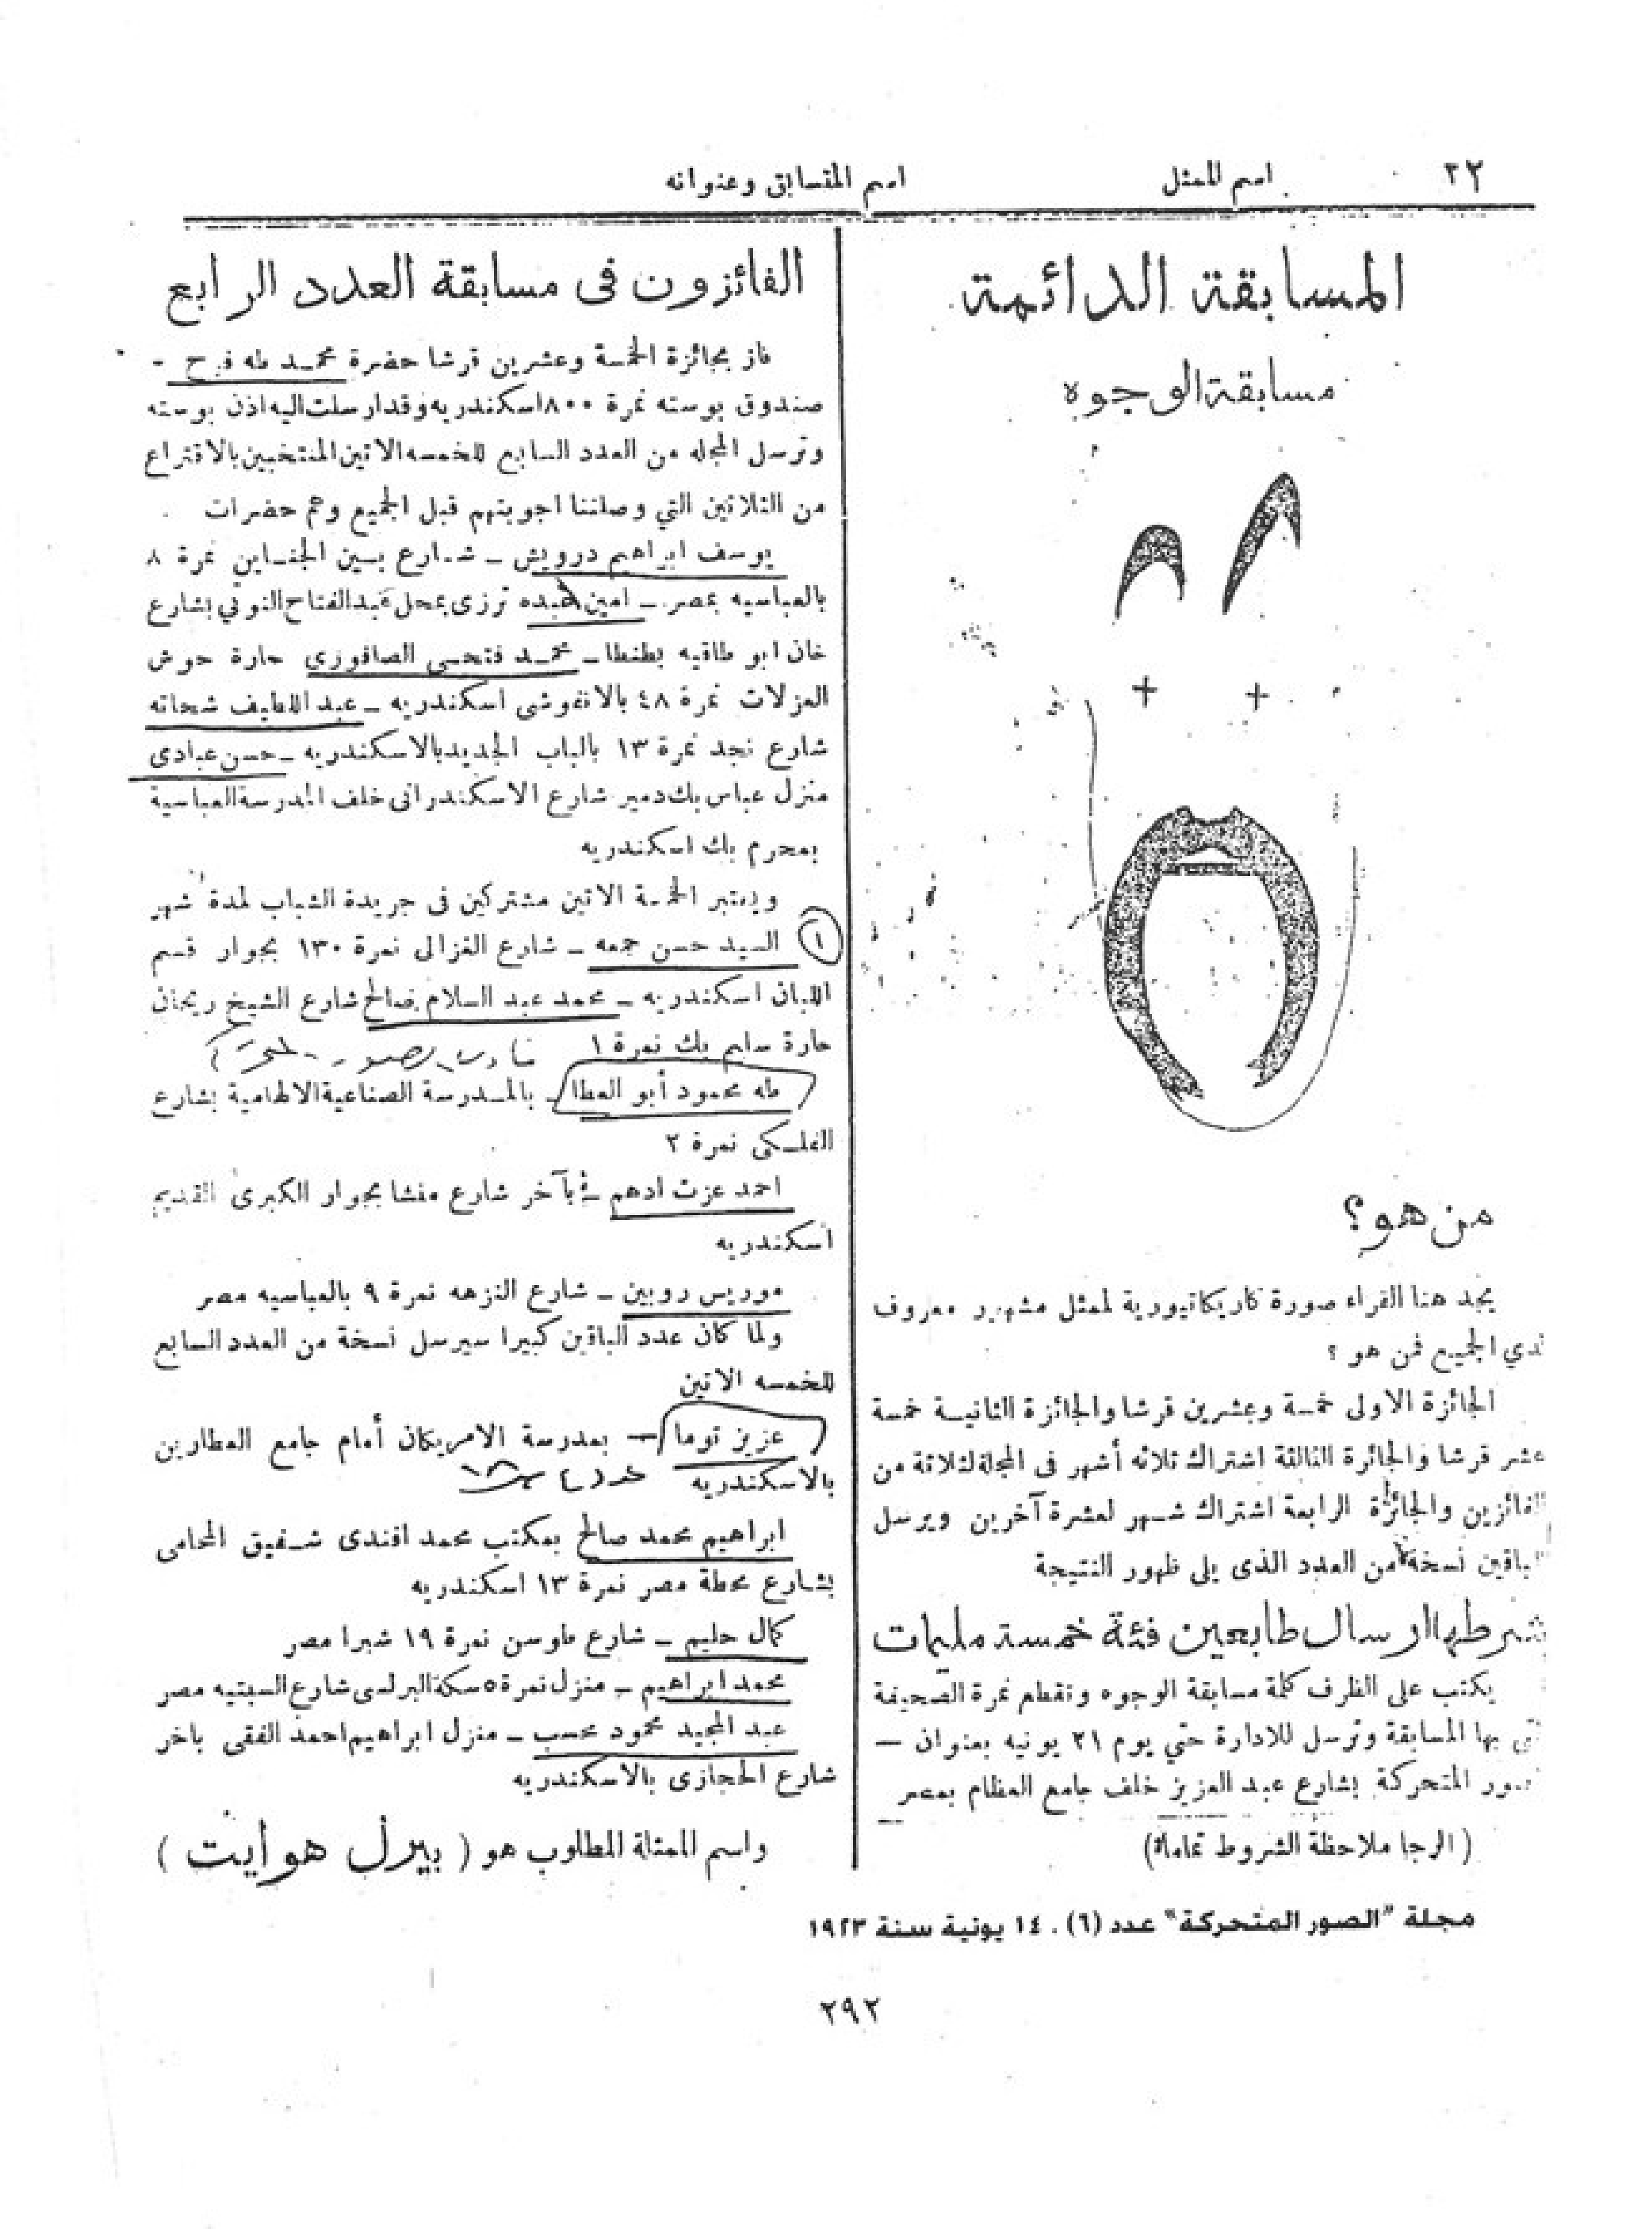 ٢٢
اسم الممثل
اسم المتسابق وعنوانه
المسابقة الدائمة
مسابقة الوجوه
من هو؟
يجد هنا القراء صورة كاريكاتيورية لممثل مشهور معروف
لدي الجميع فمن هو ؟
الجائزة الاولى خمسة وعشرين قرشا والجائزة الثانيـة خمسة
عشر قرشا والجائزة الثالثة اشتراك ثلاثه أشهر فى المجلة لثلاثة من
الفائزين والجائزة الرابعة اشتراك شـهر لعشرة آخرين ويرسل
للباقين نسخة من العدد الذى يلى ظهور النتيجة
شرطها ارسال طابعين فئة خمسة مليمات
يكتب على الظرف كلمة مسابقة الوجوه وتقطع نمرة الصحيفة
التى بها المسابقة وترسل للادارة حتي يوم ٢١ يونيه بعنوان —
الصور المتحركة بشارع عبد العزيز خلف جامع العظام بمصر
(الرجا ملاحظة الشروط تماما)
الفائزون فى مسابقة العدد الرابع
فاز بجائزة الخمسة وعشرين قرشا حضرة محمـد طه فرح -
صندوق بوسته نمرة ٨٠٠ اسكندريه وقد ارسلت اليه اذن بوسته
وترسل المجله من العدد السابع للخمسه الاتين المنتخبين بالاقتراع
من الثلاثين التي وصلتنا اجوبتهم قبل الجميع وهم حضرات
يوسف ابراهيم درويش ـ شـارع بـين الجنـاين نمرة ٨
بالعباسيه بمصر ـ امين عبده ترزى بمحل عبد الفتاح النوتي بشارع
خان ابو طاقيه بطنطا ـ محمـد فتحـى الصافورى حارة حوش
العزلات نمرة ٤٨ بالانفوشى اسكندريه ـ عبد اللطيف شحاته
شارع نجد نمرة ١٣ بالباب الجديد بالاسكندريه ـ حسن عبادى
منزل عباس بك دمير شارع الاسكندرانى خلف المدرسة العباسية
بمحرم بك اسكندريه
ويعتبر الخمسة الاتين مشتركين فى جريدة الشباب لمدة شهر
١ السيد حسن جمعه ـ شارع الغزالى نمرة ١٣٠ بجوار قسم
اللبان اسكندريه ـ محمد عبد السلام صالح شارع الشيخ ريحان
حارة سليم بك نمرة ١
طه محمود أبو العطا ـ بالمـدرسة الصناعية الالهامية بشارع
الفلـكى نمرة ٢
احمد عزت ادهم ـ بآخر شارع منشا بجوار الكبرى القديم
اسكندريه
موريس روبين ـ شارع النزهه نمرة ٩ بالعباسيه مصر
ولما كان عدد الباقين كبيرا سيرسل نسخة من العدد السابع
للخمسه الاتين
عزيز توما — بمدرسة الامريكان أمام جامع العطارين
بالاسكندريه
ابراهيم محمد صالح بمكتب محمد افندى شـفيق المحامى
بشارع محطة مصر نمرة ١٣ اسكندريه
كمال حليم ـ شارع طوسن نمرة ١٩ شبرا مصر
محمد ابراهيم ـ منزل نمرة ٥ سكة البرلسى شارع السبتيه مصر
عبد المجيد محمود محسب ـ منزل ابراهيم احمد الفقى باخر
شارع الحجازى بالاسكندريه
واسم الممثلة المطلوب هو ( بيرل هوايت )
مجلة "الصور المتحركة" عدد (٦) . ١٤ يونية سنة ١٩٢٣
٢٩٢